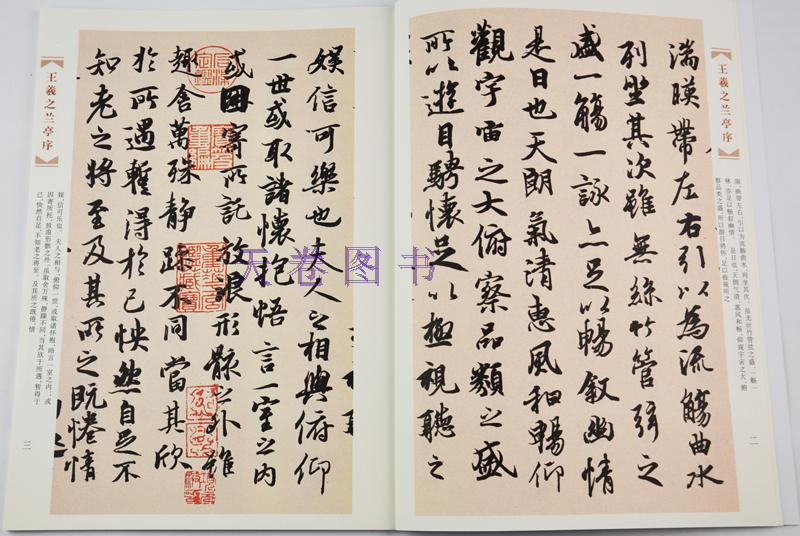 王羲之兰亭序
湍，映带左右。引以为流觞曲水，列坐其次，虽无丝竹管弦之盛，一觞一
咏，亦足以畅叙幽情。是日也，天朗气清，惠风和畅，仰观宇宙之大，俯
察品类之盛，所以游目骋怀，足以极视听之
二
湍暎帶左右引以為流觴曲水
列坐其次雖無絲竹管弦之
盛一觴一詠亦足以暢叙幽情
是日也天朗氣清惠風和暢仰
觀宇宙之大俯察品類之盛
所以遊目騁懷足以極視聽之
娱信可樂也夫人之相與俯仰
一世或取諸懷抱悟言一室之内
或因寄所託放浪形骸之外雖
趣舍萬殊静躁不同當其欣
於所遇暫得於己怏然自足不
知老之將至及其所之既惓情
王羲之兰亭序
娱，信可乐也。夫人之相与，俯仰一世，或取诸怀抱，晤言一室之内；或
因寄所托，放浪形骸之外。虽取舍万殊，静躁不同，当其欣于所遇，暂得于
己，怏然自足，不知老之将至。及其所之既倦，情
三
天卷图书